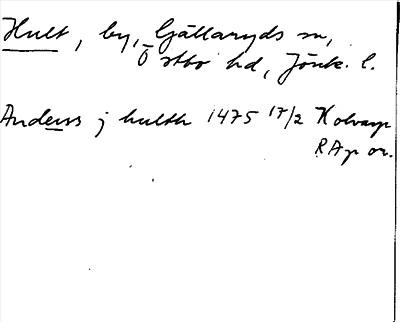 Hult, by, Gällaryds sn,
Östbo hd, Jönk. l.
Anders j hulth 1475 17/2 
RAp or.